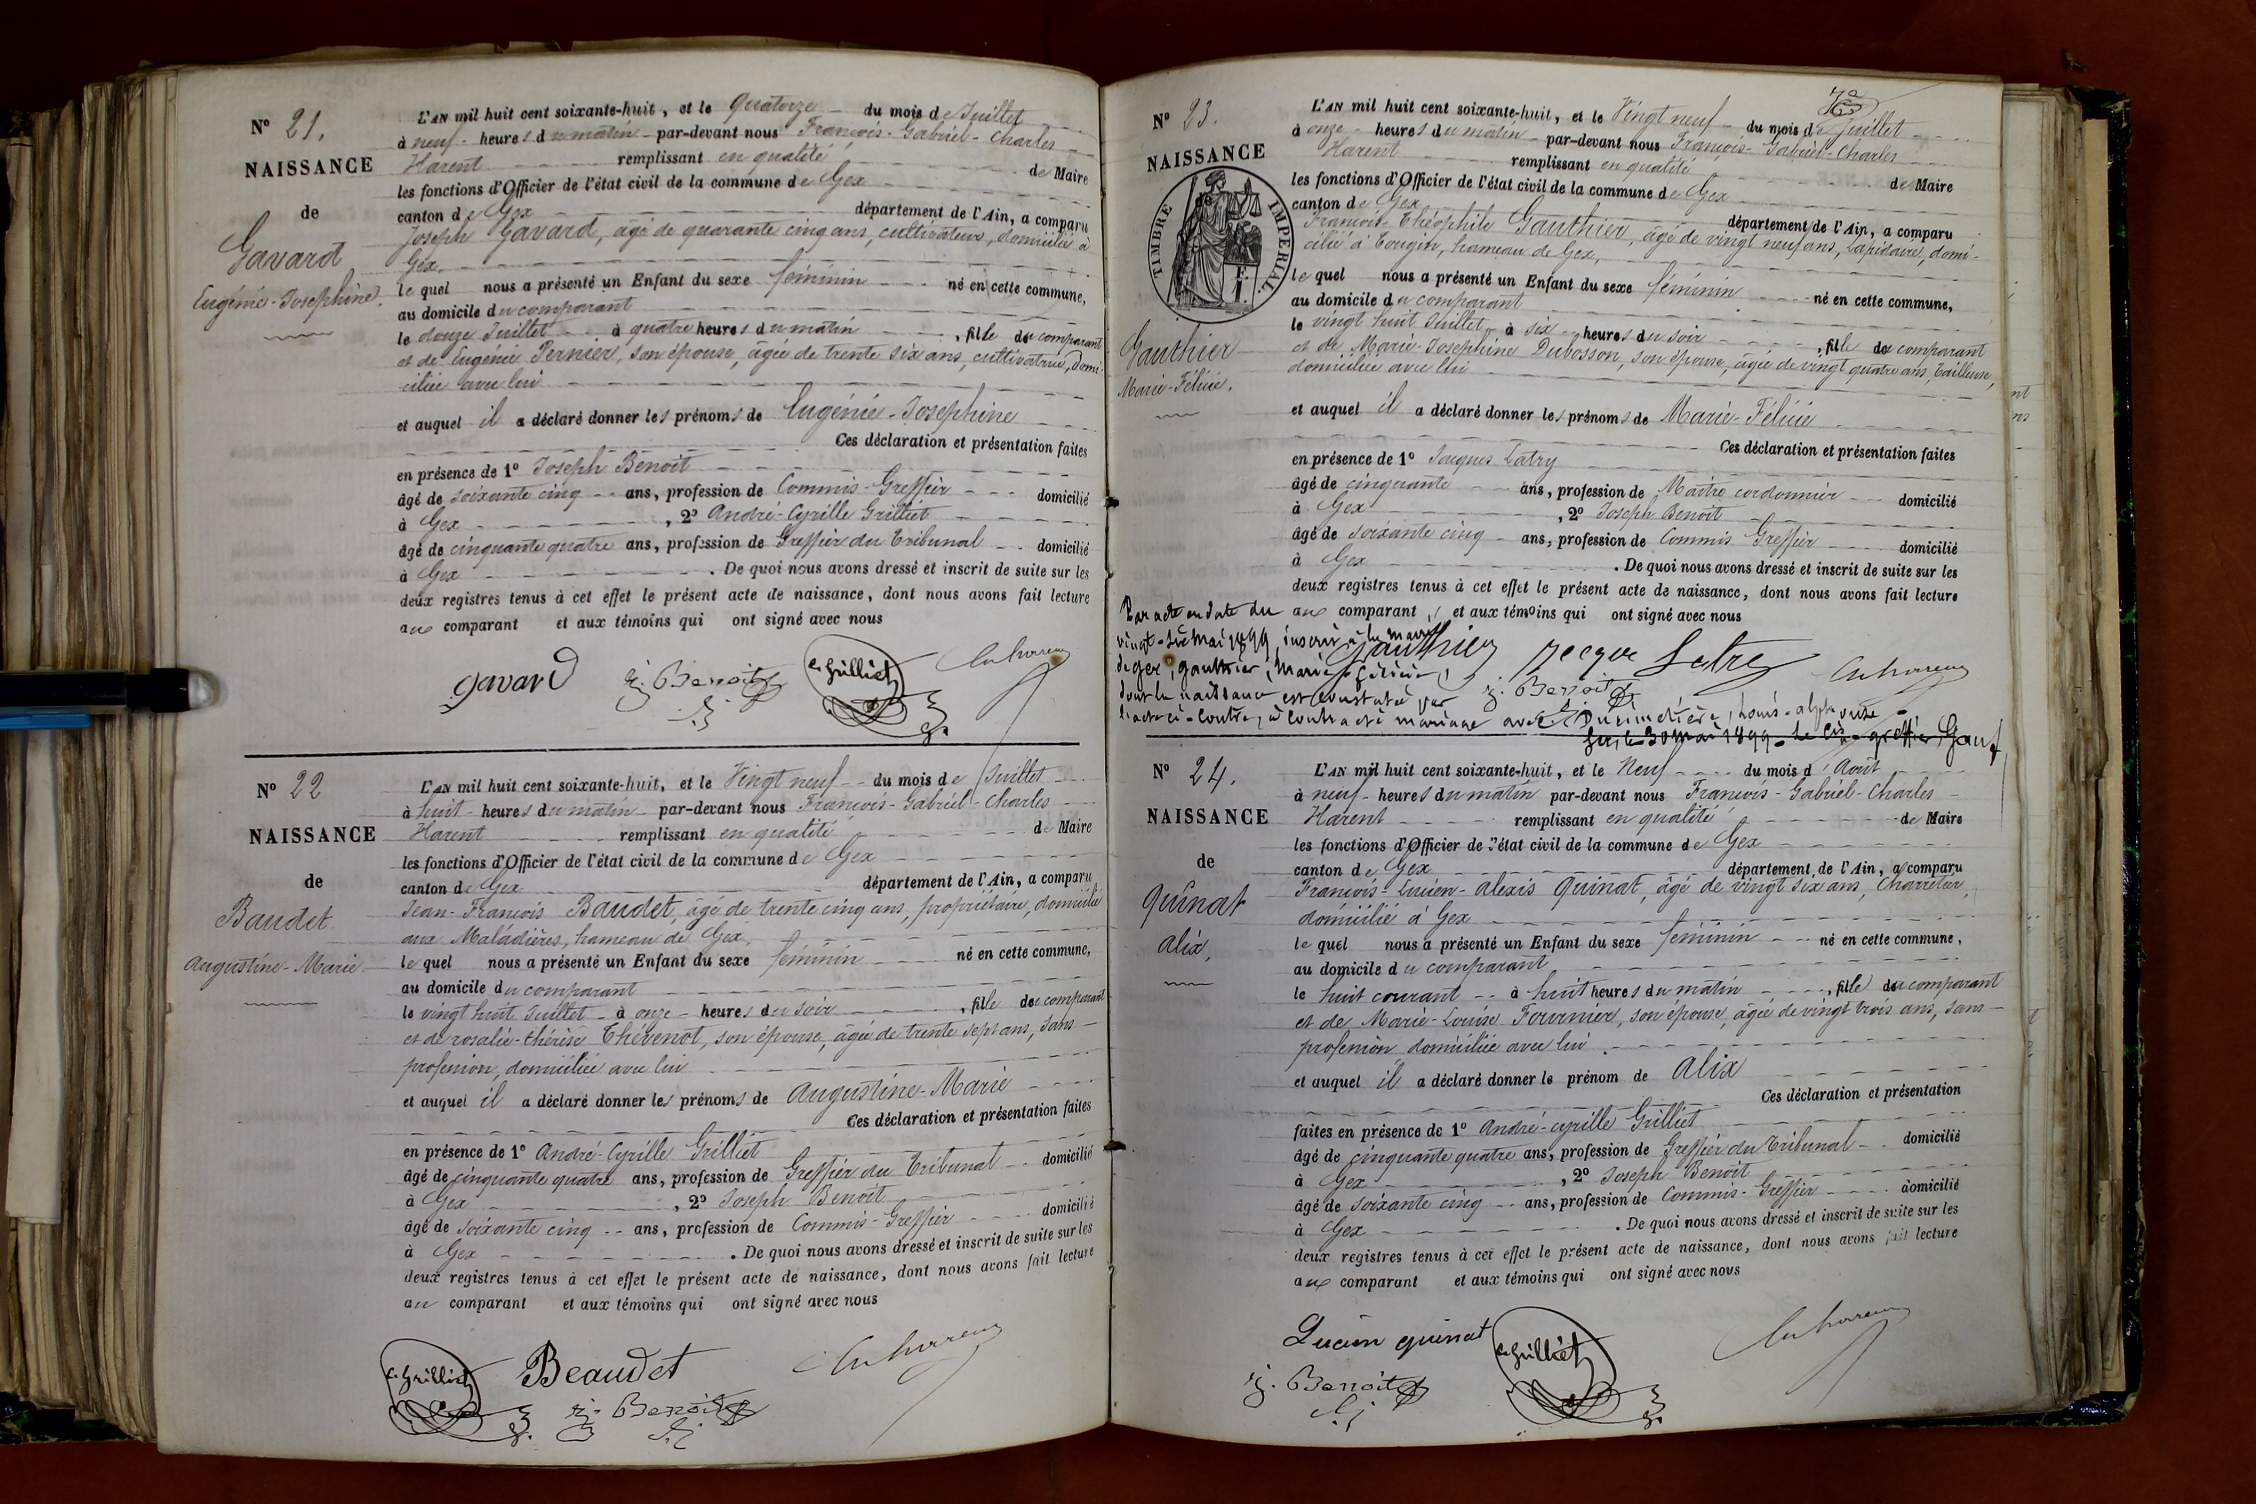 N° 21.
NAISSANCE
de
Gavard
Eugénie-Josephine.
L'AN mil huit cent soixante-huit, et le Quatorze du mois de Juillet
à neuf heures du matin par-devant nous François-Gabriel-Charles
Harent remplissant en qualité de Maire
les fonctions d'Officier de l'état civil de la commune de Gex
canton de Gex département de l'Ain, a comparu
Joseph Gavard, âgé de quarante cinq ans, cultivateur, domicilié à
Gex.
le quel nous a présenté un Enfant du sexe féminin né en cette commune,
au domicile du comparant
le douze Juillet à quatre heures du matin, fille du comparant
et de Eugénie Pernier, son épouse, âgée de trente six ans, cultivatrice, domi-
ciliée avec lui
et auquel il a déclaré donner les prénoms de Eugénie-Josephine
Ces déclaration et présentation faites
en présence de 1° Joseph Benoit
âgé de soixante cinq ans, profession de Commis-Greffier domicilié
à Gex, 2° André-Cyrille Grilliet
âgé de cinquante quatre ans, profession de Greffier du Tribunal domicilié
à Gex. De quoi nous avons dressé et inscrit de suite sur les
deux registres tenus à cet effet le présent acte de naissance, dont nous avons fait lecture
au comparant et aux témoins qui ont signé avec nous
gavard J. Benoit C. Grilliet
N° 22
NAISSANCE
de
Baudet
Augustine-Marie
L'AN mil huit cent soixante-huit, et le Vingt neuf du mois de Juillet
à huit heures du matin par-devant nous François-Gabriel-Charles
Harent remplissant en qualité de Maire
les fonctions d'Officier de l'état civil de la commune de Gex
canton de Gex département de l'Ain, a comparu
Jean-François Baudet, âgé de trente cinq ans, propriétaire, domicilié
aux Maladières, hameau de Gex,
le quel nous a présenté un Enfant du sexe féminin né en cette commune,
au domicile du comparant
le vingt huit Juillet à onze heures du soir, fille du comparant
et de rosalie-thérèse Thévenot, son épouse, âgée de trente sept ans, sans
profession, domiciliée avec lui
et auquel il a déclaré donner les prénoms de Augustine-Marie
Ces déclaration et présentation faites
en présence de 1° André-Cyrille Grilliet
âgé de cinquante quatre ans, profession de Greffier du Tribunal domicilié
à Gex, 2° Joseph Benoit
âgé de soixante cinq ans, profession de Commis-Greffier domicilié
à Gex. De quoi nous avons dressé et inscrit de suite sur les
deux registres tenus à cet effet le présent acte de naissance, dont nous avons fait lecture
au comparant et aux témoins qui ont signé avec nous
C. Grilliet Beaudet
J. Benoit
N° 23.
NAISSANCE
TIMBRE IMPERIAL
Gauthier
Marie-Félicie.
L'AN mil huit cent soixante-huit, et le Vingt neuf du mois de Juillet
à onze heures du matin par-devant nous François-Gabriel-Charles
Harent remplissant en qualité de Maire
les fonctions d'Officier de l'état civil de la commune de Gex
canton de Gex département de l'Ain, a comparu
François-Théophile Gauthier, âgé de vingt neuf ans, Lapidaire, domi-
cilié à Tougin, hameau de Gex,
le quel nous a présenté un Enfant du sexe féminin né en cette commune,
au domicile du comparant
le vingt huit Juillet à six heures du soir, fille du comparant
et de Marie-Josephine Dubosson, son épouse, âgée de vingt quatre ans, Tailleuse,
domiciliée avec lui
et auquel il a déclaré donner les prénoms de Marie-Félicie
Ces déclaration et présentation faites
en présence de 1° Jacques Latry
âgé de cinquante ans, profession de Maître cordonnier domicilié
à Gex, 2° Joseph Benoit
âgé de soixante cinq ans, profession de Commis Greffier domicilié
à Gex. De quoi nous avons dressé et inscrit de suite sur les
deux registres tenus à cet effet le présent acte de naissance, dont nous avons fait lecture
au comparant, et aux témoins qui ont signé avec nous
Gauthier
J. Benoit
Par acte en date du
vingt-six mai 1899, inscrit à la mairie
de gex, gauthier, Marie félicie,
dont la naissance est constatée par
l'acte ci-contre, a contracté mariage avec
Gex, le 30 mai 1899. Le greffier,
N° 24.
NAISSANCE
de
Quinat
Alix,
L'AN mil huit cent soixante-huit, et le Neuf du mois d'Août
à neuf heures du matin par-devant nous François-Gabriel-Charles
Harent remplissant en qualité de Maire
les fonctions d'Officier de l'état civil de la commune de Gex
canton de Gex département de l'Ain, a comparu
François-Lucien-Alexis Quinat, âgé de vingt six ans, Charretier,
domicilié à Gex
le quel nous a présenté un Enfant du sexe féminin né en cette commune,
au domicile du comparant
le huit courant à huit heures du matin, fille du comparant
et de Marie-Louise Fournier, son épouse, âgée de vingt trois ans, sans
profession, domiciliée avec lui.
et auquel il a déclaré donner le prénom de Alix
Ces déclaration et présentation
faites en présence de 1° André-Cyrille Grilliet
âgé de cinquante quatre ans, profession de Greffier du Tribunal domicilié
à Gex, 2° Joseph Benoit
âgé de soixante cinq ans, profession de Commis-Greffier domicilié
à Gex. De quoi nous avons dressé et inscrit de suite sur les
deux registres tenus à cet effet le présent acte de naissance, dont nous avons fait lecture
au comparant et aux témoins qui ont signé avec nous
Lucien quinat C. Grilliet
J. Benoit